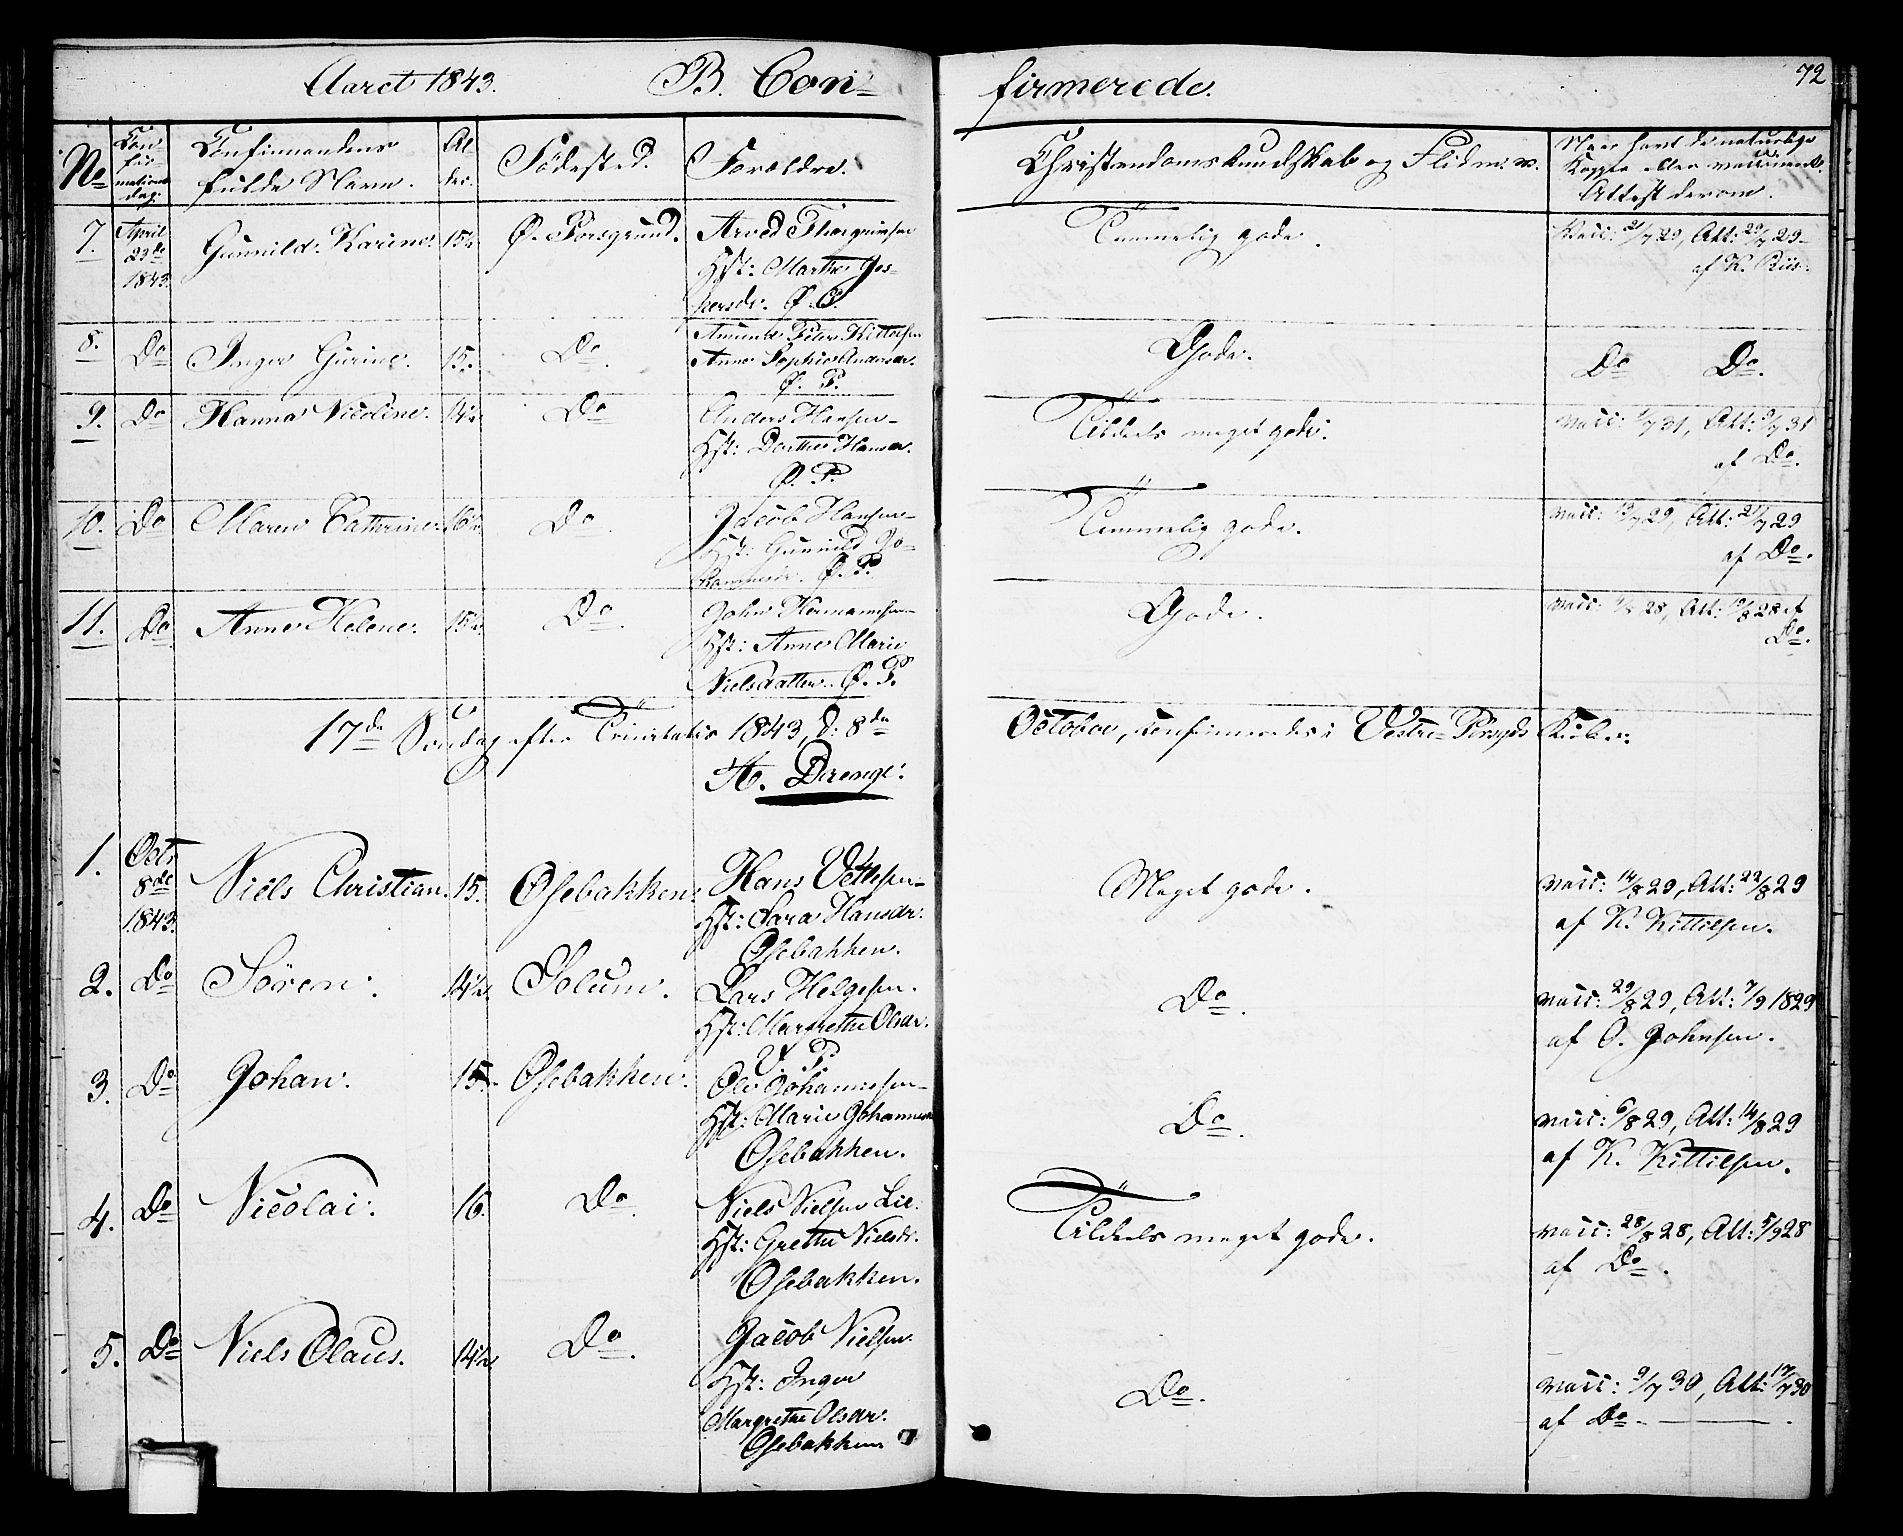 Aaret 1843. B. Con-
firmerede.
72
No
Con
fir
mations
dag.
Confirmandens
fulde Navn.
Al
der.
Fødested.
Forældre.
Christendomskundskab og Flid m. v.
Naar havt de naturlige
Kopper eller vaccineret.
Attest derom.
7. April
29de
1843.
Gunnild Karine. 15½ Ø. Porsgrund. Arved Thorgrimsen
Hst: Marthe Jes-
persdr. Ø. P.
Temmelig gode.
Vacc: 21/7 29, Att: 29/7 29
af K. Riis.
8. Do Inger Gurine. 15. Do. Amund Peter Kittelsen
Anne Sophie Andersdr.
Ø. P.
Gode.
Do Do.
9. Do Hanna Nicoline. 14½ Do Anders Hansen
Hst: Dorthe Hansdr.
Ø. P.
Tildeels meget gode.
vacc: 1/7 31, Att: 9/7 31
af Do.
10. Do Maren Cathrine. 16½ Do. Jacob Hansen
Hst: Gunnild Jo-
hannesdr. Ø. P.
Temmelig gode.
vacc: 13/7 29, Att: 21/7 29
af Do.
11. Do Anne Helene. 15½ Do. John Hermansen
Hst: Anne Marie
Nielsdatter. Ø. P.
Gode.
vacc: 1/8 28, Att: 10/8 28 af
Do.
17de Søndag efter Trinitatis 1843, d: 8de October, confirmerede i Vestre-Porsgds Kirke:
A. Drenge.
1. Octr
8de
1843.
Niels Christian. 15. Osebakken. Hans Vetlesen
Hst: Sara Hansdr.
Osebakken.
Meget gode.
vacc: 14/8 29, Att: 22/8 29
af K. Kittilsen.
2. Do Søren. 14½ Solum. Lars Helgesen.
Hst: Margrethe Olsdr.
V. P.
Do.
vacc: 29/8 29, Att: 7/9 1829
af O. Johnsen.
3. Do Johan. 15. Osebakken. Ole Johannesen
Hst: Marie Johannesdr.
Osebakken.
Do.
vacc: 6/8 29, Att: 14/8 29
af K. Kittilsen.
4. Do Nicolai. 16. Do. Niels Nielsen Lie.
Hst: Grethe Nielsdr.
Osebakken.
Tildeels meget gode.
vacc: 28/8 28, Att: 5/9 28
af Do.
5. Do Niels Olaus. 14½ Do. Jacob Nielsen
Hst: Inger
Margrethe Olsdr.
Osebakken
Do.
vacc: 9/7 30, Att: 17/7 30
af Do.